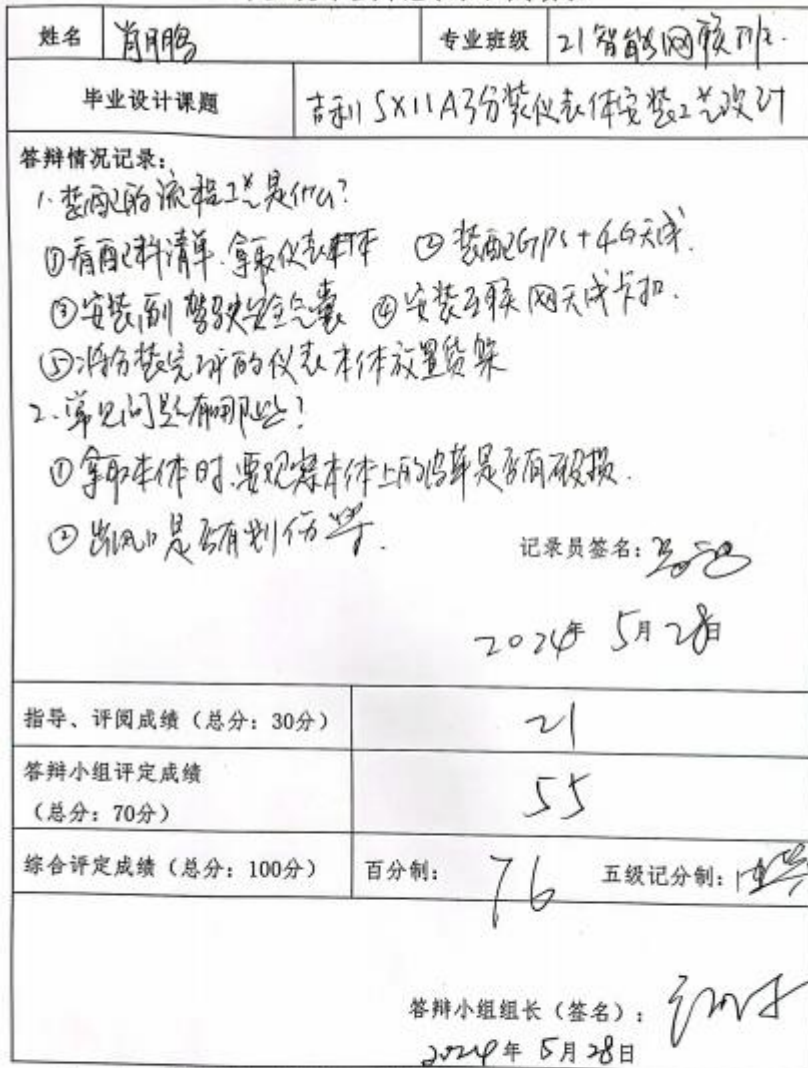 姓名 肖鹏 专业班级 21智能网联班.
毕业设计课题 吉利SX11A3分装仪表体安装工艺设计
答辩情况记录:
1.装配的流程工艺是什么?
①看配料清单.拿取仪表本体 ②装配GPS+4G天线.
③安装副驾驶安全气囊 ④安装互联网天线卡扣.
⑤将分装完毕的仪表本体放置货架
2.常见问题有哪些?
①拿取本体时.要观察本体上的是否有破损.
②出风口是否有划伤等.
记录员签名:
2024年 5月28日
指导、评阅成绩(总分:30分) 21
答辩小组评定成绩 55
(总分:70分)
综合评定成绩(总分:100分) 百分制: 76 五级记分制:中等
答辩小组组长(签名):
2024年5月28日